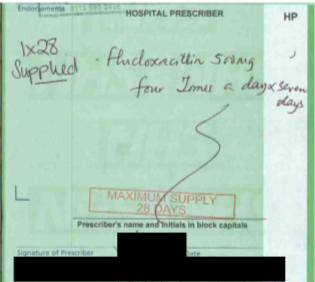 Endorsements
HOSPITAL PRESCRIBER
HP
1x28
Supplied
Flucloxacillin 500mg
four Times a day x seven
days
MAXIMUM SUPPLY
28 DAYS
Prescriber's name and initials in block capitals
Signature of Prescriber
Date